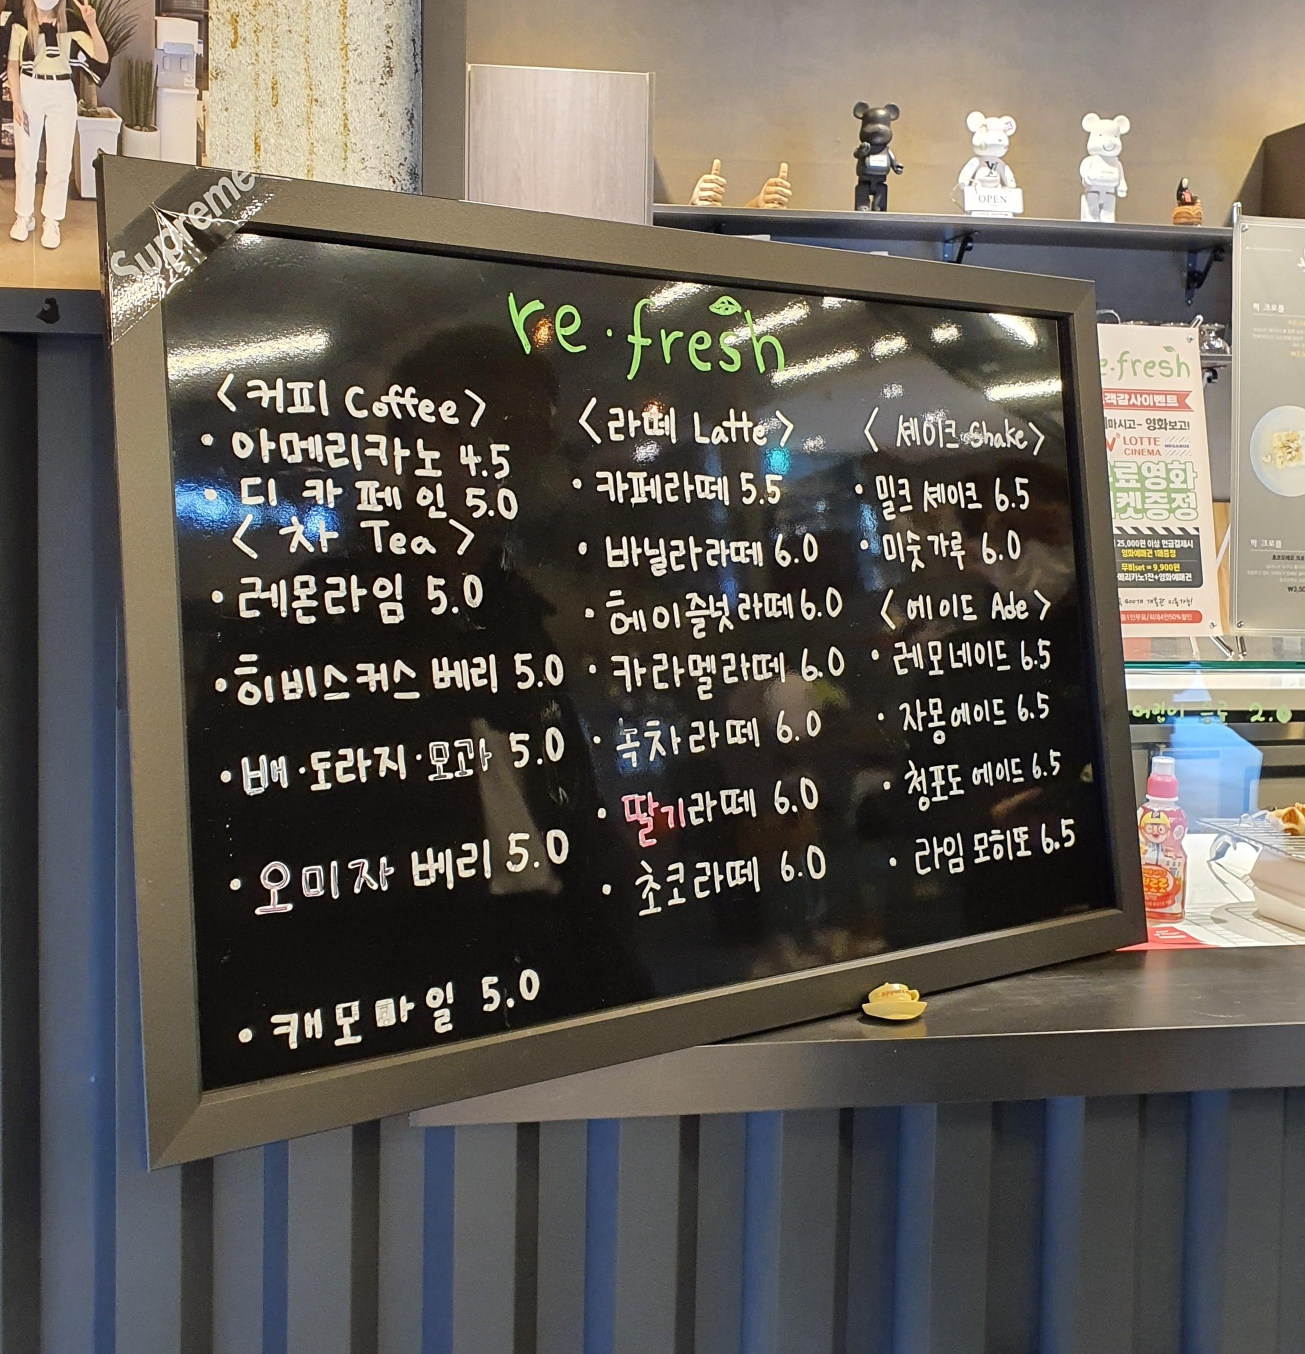 Supreme
re·fresh
<커피 Coffee>
• 아메리카노 4.5
• 디카페인 5.0
<차 Tea>
• 레몬라임 5.0
• 히비스커스 베리 5.0
• 배·도라지·모과 5.0
• 오미자 베리 5.0
• 캐모마일 5.0
<라떼 Latte>
• 카페라떼 5.5
• 바닐라라떼 6.0
• 헤이즐넛라떼 6.0
• 카라멜라떼 6.0
• 녹차라떼 6.0
• 딸기라떼 6.0
• 초코라떼 6.0
<셰이크 Shake>
• 밀크 셰이크 6.5
• 미숫가루 6.0
<에이드 Ade>
• 레모네이드 6.5
• 자몽에이드 6.5
• 청포도 에이드 6.5
• 라임 모히또 6.5
OPEN
e·fresh
객감사이벤트
마시고~ 영화보고!
LOTTE
CINEMA
MEGABOX
료영화
켓증정
25,000원 이상 현금결제시
영화예매권 1매증정
무비set = 9,900원
메리카노1잔+영화예매권
떡 크로플
떡 크로플
2.0